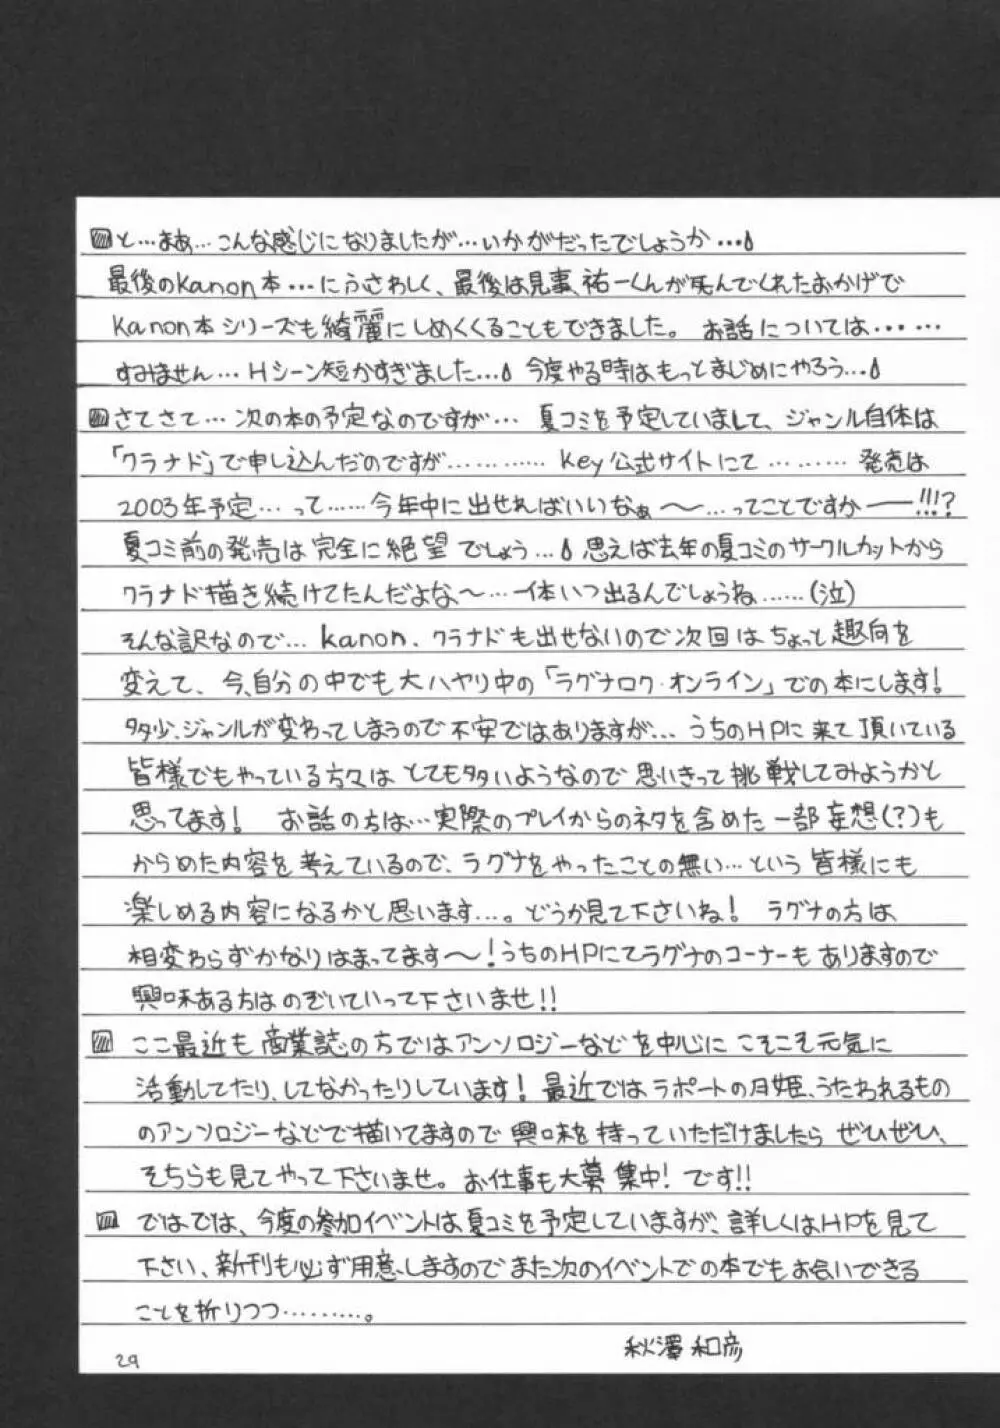 と…まぁ…こんな感じになりましたが…いかがだったでしょうか…
最後のkanon本…にふさわしく、最後は見事、祐一くんが死んでくれたおかげで
kanon本シリーズも綺麗にしめくくることもできました。 お話については……
すみません…Hシーン短かすぎました… 今度やる時はもっとまじめにやろう…
さてさて…次の本の予定なのですが… 夏コミを予定していまして、ジャンル自体は
「クラナド」で申し込んだのですが………… Key公式サイトにて……… 発売は
2003年予定…って……今年中に出せればいいなぁ〜…ってことですかー!!!?
夏コミ前の発売は完全に絶望でしょう… 思えば去年の夏コミのサークルカットから
クラナド描き続けてたんだよな、〜…一体いつ出るんでしょうね……(泣)
そんな訳なので…kanon、クラナドも出せないので次回はちょっと趣向を
変えて、今、自分の中でも大ハヤリ中の「ラグナロク・オンライン」での本にします!
多少、ジャンルが変わってしまうので不安ではありますが… うちのHPに来て頂いている
皆様でもやっている方々はとても多いようなので思いきって挑戦してみようかと
思ってます! お話の方は…実際のプレイからのネタを含めた一部妄想(?)も
からめた内容を考えているので、ラグナをやったことの無い…という皆様にも
楽しめる内容になるかと思います…。どうか見て下さいね! ラグナの方は、
相変わらずかなりはまってます〜!うちのHPにてラグナのコーナーもありますので
興味ある方はのぞいていって下さいませ!!
ここ最近も商業誌の方ではアンソロジーなどを中心にこそこそ元気に
活動してたり、してなかったりしています! 最近では、ラポートの月姫、うたわれるもの
のアンソロジーなどで描いてますので興味を持っていただけましたらぜひぜひ、
そちらも見てやって下さいませ。お仕事も大募集中! です!!
ではでは、今度の参加イベントは夏コミを予定していますが、詳しくはHPを見て
下さい、新刊も必ず用意しますのでまた次のイベントでの本でもお会いできる
ことを祈りつつ………。
秋澤 和彦
29